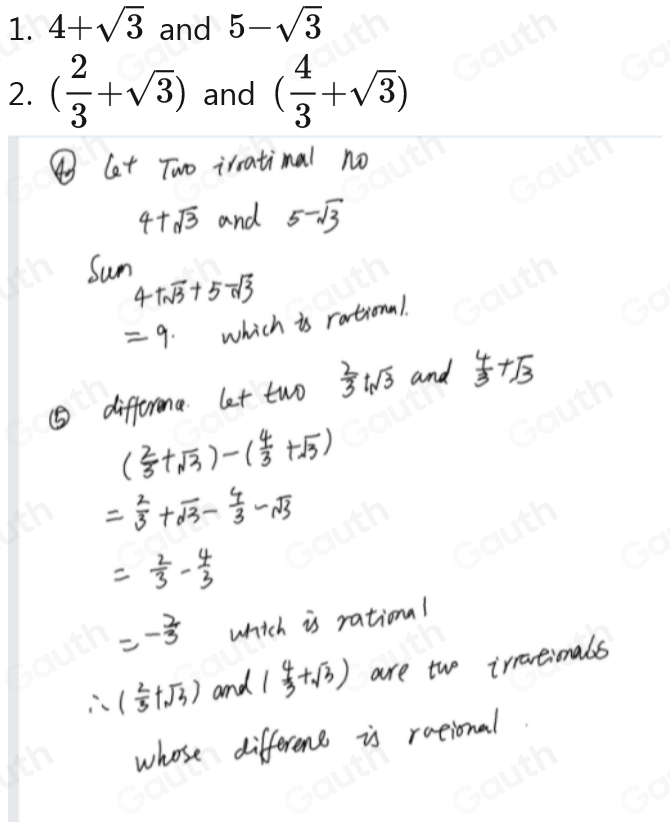 1. 4+√3 and 5−√3
2. (2/3+√3) and (4/3+√3)
④ let Two irrational no
4+√3 and 5-√3
Sum
4+√3+5-√3
= 9. which is rational.
⑤ difference. let two 2/3+√3 and 4/3+√3
(2/3+√3)-(4/3+√3)
= 2/3+√3-4/3-√3
= 2/3-4/3
= -2/3 which is rational
∴ (2/3+√3) and (4/3+√3) are two irrationals
whose differene is rational.
Gauth